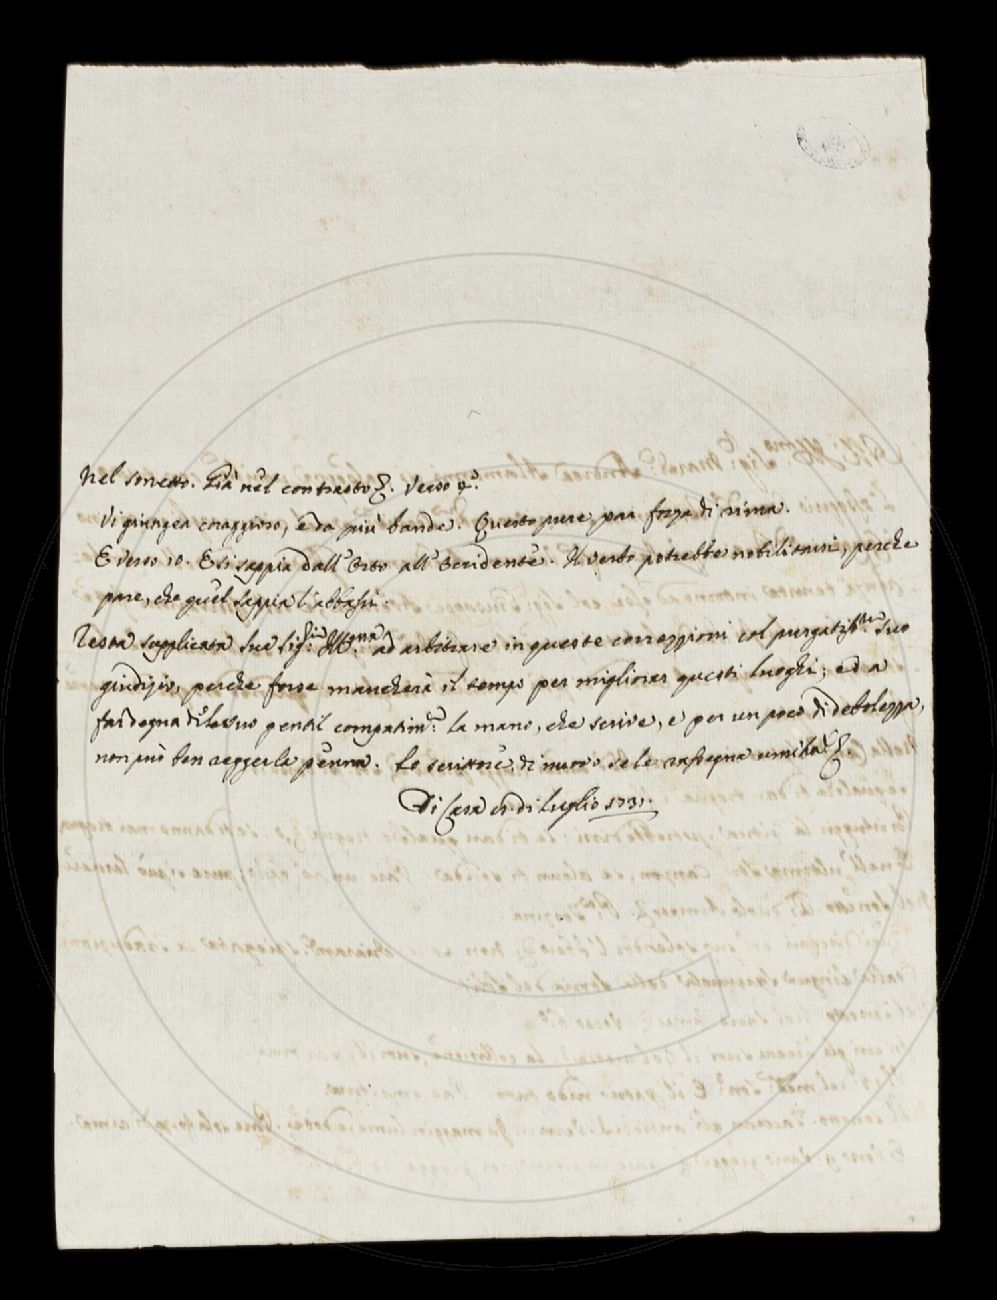 Nel sonetto. Già nel contrasto &. verso 4.º
Vi giungea coraggioso, e da più bande. Questo pure par forza di rima.
E verso 10. E si sappia dall'Orto all'Occidente. Il verbo potrebbe nobilitarsi, perche
pare, che quel sappia l'abbassi.
Resta supplicata Sua Sig.ria Ill.ma ad arbitrare in queste correzzioni col purgatiss.mo suo
giudizio, perche forse mancherà il tempo per migliorar questi luoghi; ed a
far degna del suo gentil compatim.to la mano, che scrive, e per un poco di debolezza,
non può ben reggere la penna. Lo scrittore di nuovo se le rassegna umiliss. &.
Di Casa di Luglio 1731.